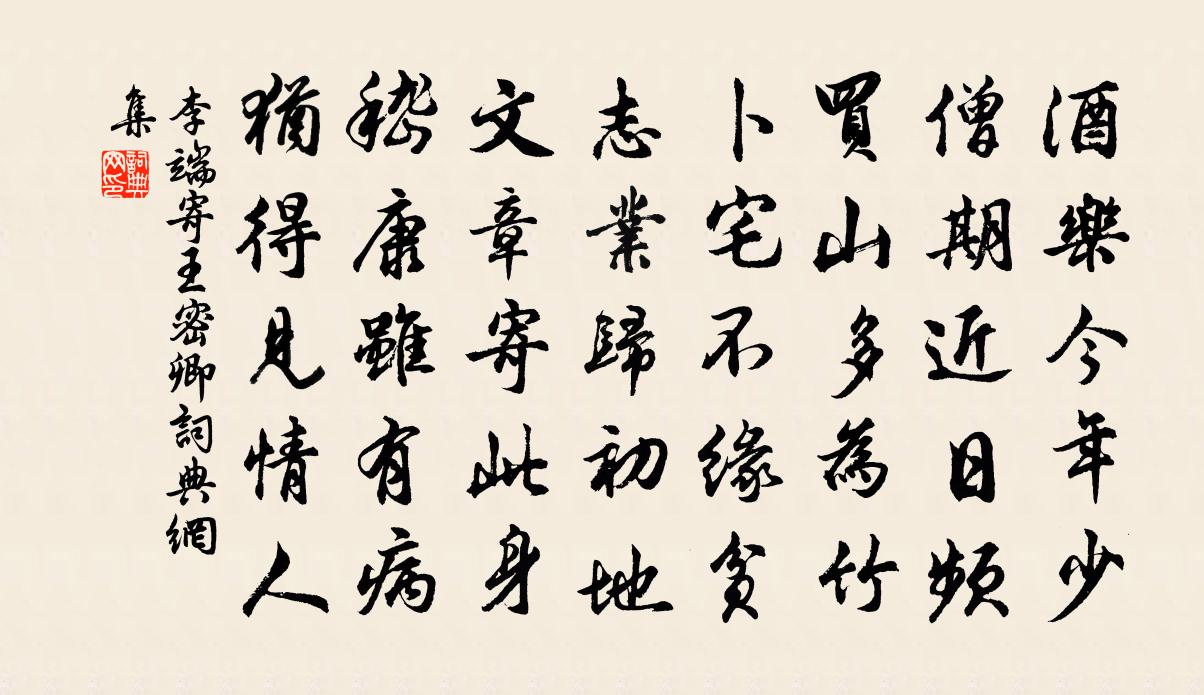 酒樂今年少
僧期近日頻
買山多為竹
卜宅不緣貧
志業歸初地
文章寄此身
嵇康雖有病
猶得見情人
李端寄王密卿詞典網
集
詞典網印